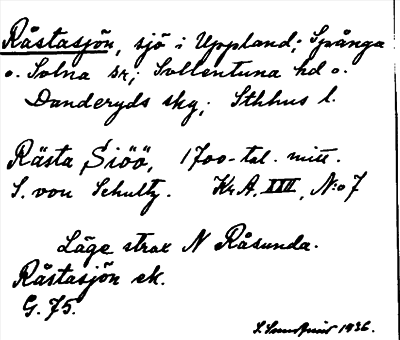 Råstasjön, sjö i Uppland; Spånga
o. Solna sr; Sollentuna hd o.
Danderyds skg; Sthlms l.
Rästa Siöö, 1700-tal. mitt.
S. von Schultz. Kr.A. XXX, N:o 7
Läge strax N Råsunda.
Råstasjön ek.
G. 75.
1936.